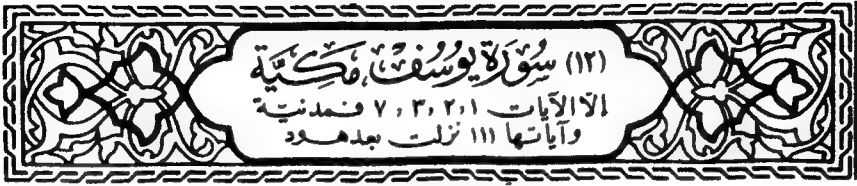 (١٢) سُورَة يُوسُفْ مَكيَّة
إلّا الآيات ١ ، ٢ ، ٣ ، ٧ فمدنيّة
وآياتها ١١١ نزلت بعد هود